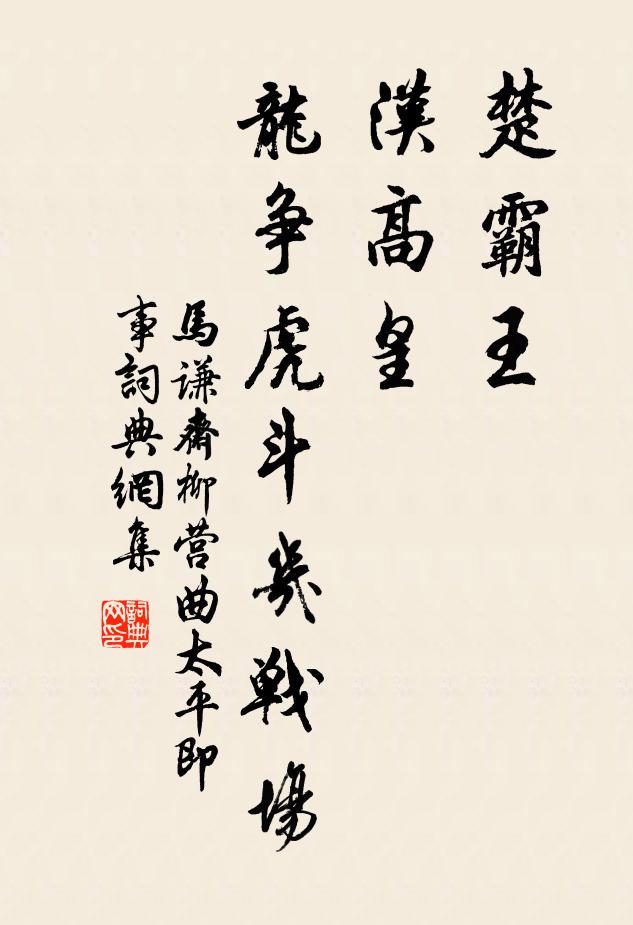 楚霸王
漢高皇
龍争虎斗幾戦場
馬謙齋柳营曲太平即
事詞典網集
詞典网印